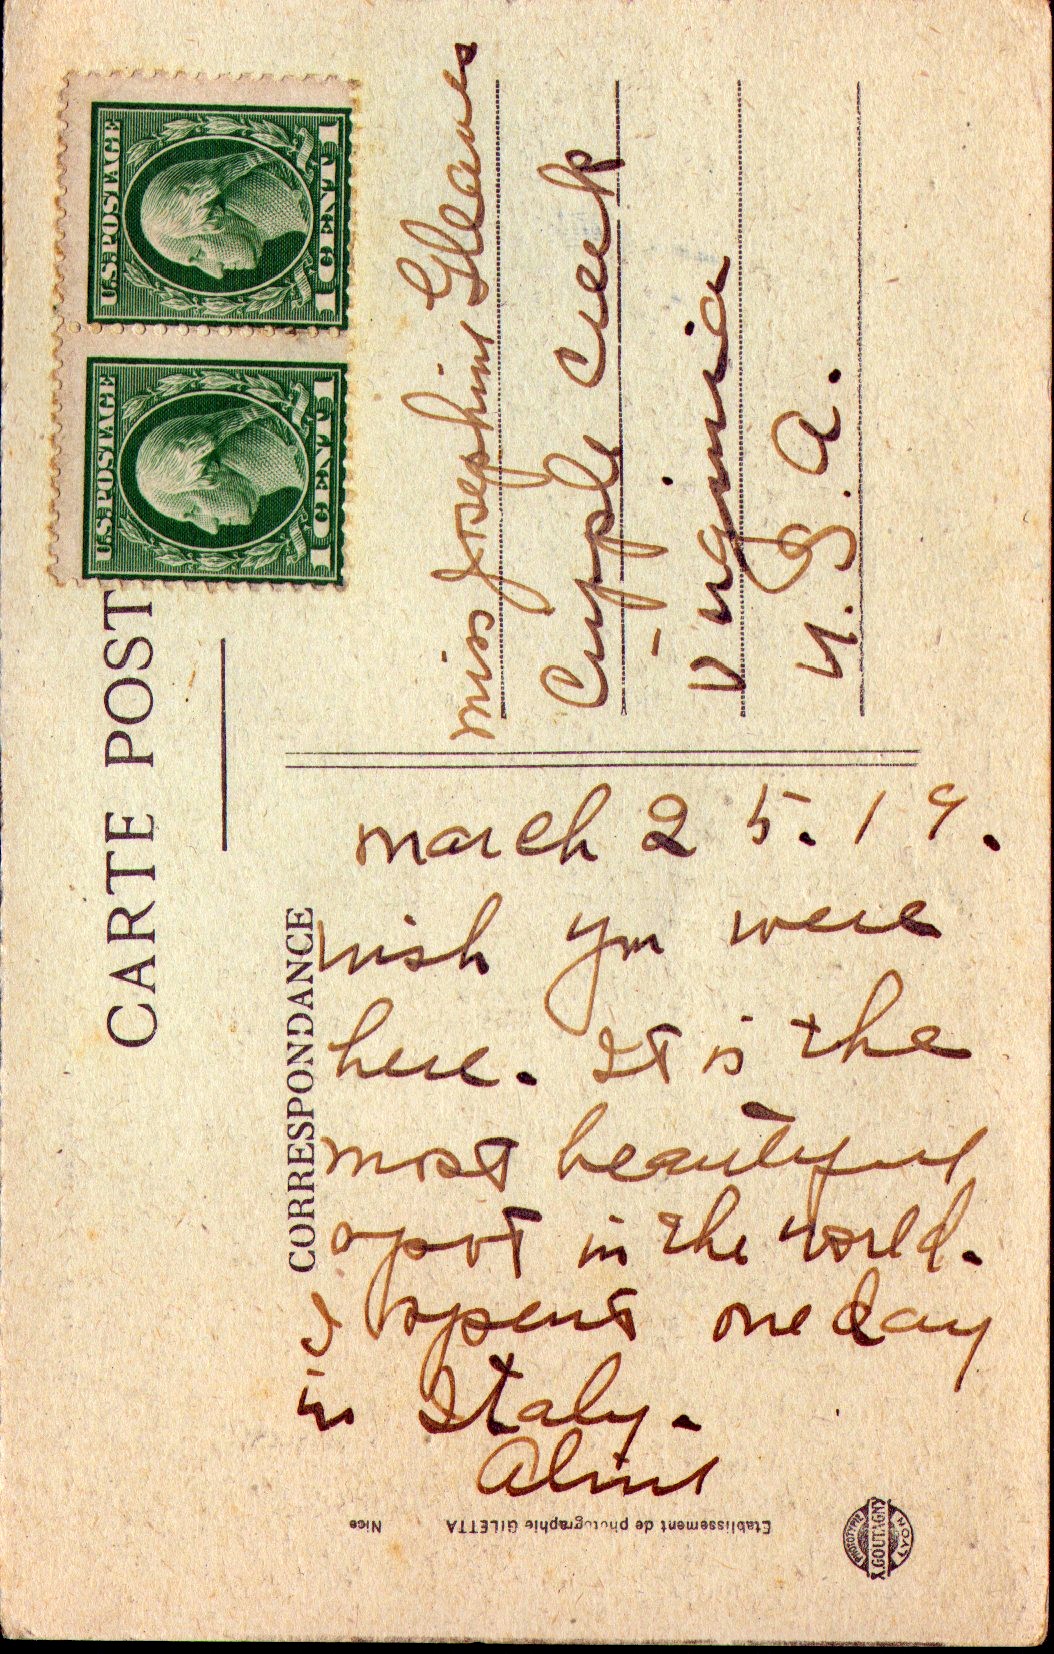 CARTE POST
CORRESPONDANCE
U.S. POSTAGE
1 CENT 1
U.S. POSTAGE
1 CENT 1
Miss Josephine Gleaves
Cripple Creek
Virginia
U.S.A.
March 25.19.
Wish you were
here. It is the
most beautiful
spot in the world.
I spent one day
in Italy.
Aline
Etablissement de photographie GILETTA Nice
PHOTOTYPIE
A. GOUTAGNY
LYON